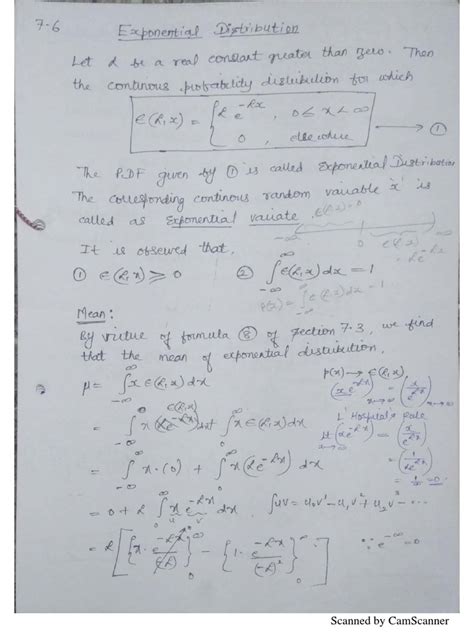 7.6 Exponential Distribution
Let α be a real constant greater than zero. Then
the continous probability distribution for which
∈(α,x) = { α e^-αx , 0 ≤ x < ∞
0 , elsewhere → ①
The PDF given by ① is called Exponential Distribution
The corresponding continous random variable 'x' is
called as Exponential variate
∈(α,x)=0
-∞ 0 ∈(α,x) ∞
= αe^-αx
It is observed that,
① ∈(α,x) ≥ 0 ② ∫_-∞^∞ ∈(α,x) dx = 1
Mean:
By virtue of formula ⑧ of section 7.3, we find
that the mean of exponential distribution,
μ = ∫_-∞^∞ x ∈(α,x) dx
p(x) → ∈(α,x)
L' Hospital's Rule
= ∫_-∞^0 x (αe^-αx) dx + ∫_0^∞ x ∈(α,x) dx
= ∫_-∞^0 x·(0) + ∫_0^∞ x (αe^-αx) dx
= 0 + α ∫_0^∞ x e^-αx dx
= α [ { x · e^-αx/(-α) }_0^∞ - { 1 · e^-αx/(-α)² }_0^∞ ]
∵ e^-∞ = 0
Scanned by CamScanner